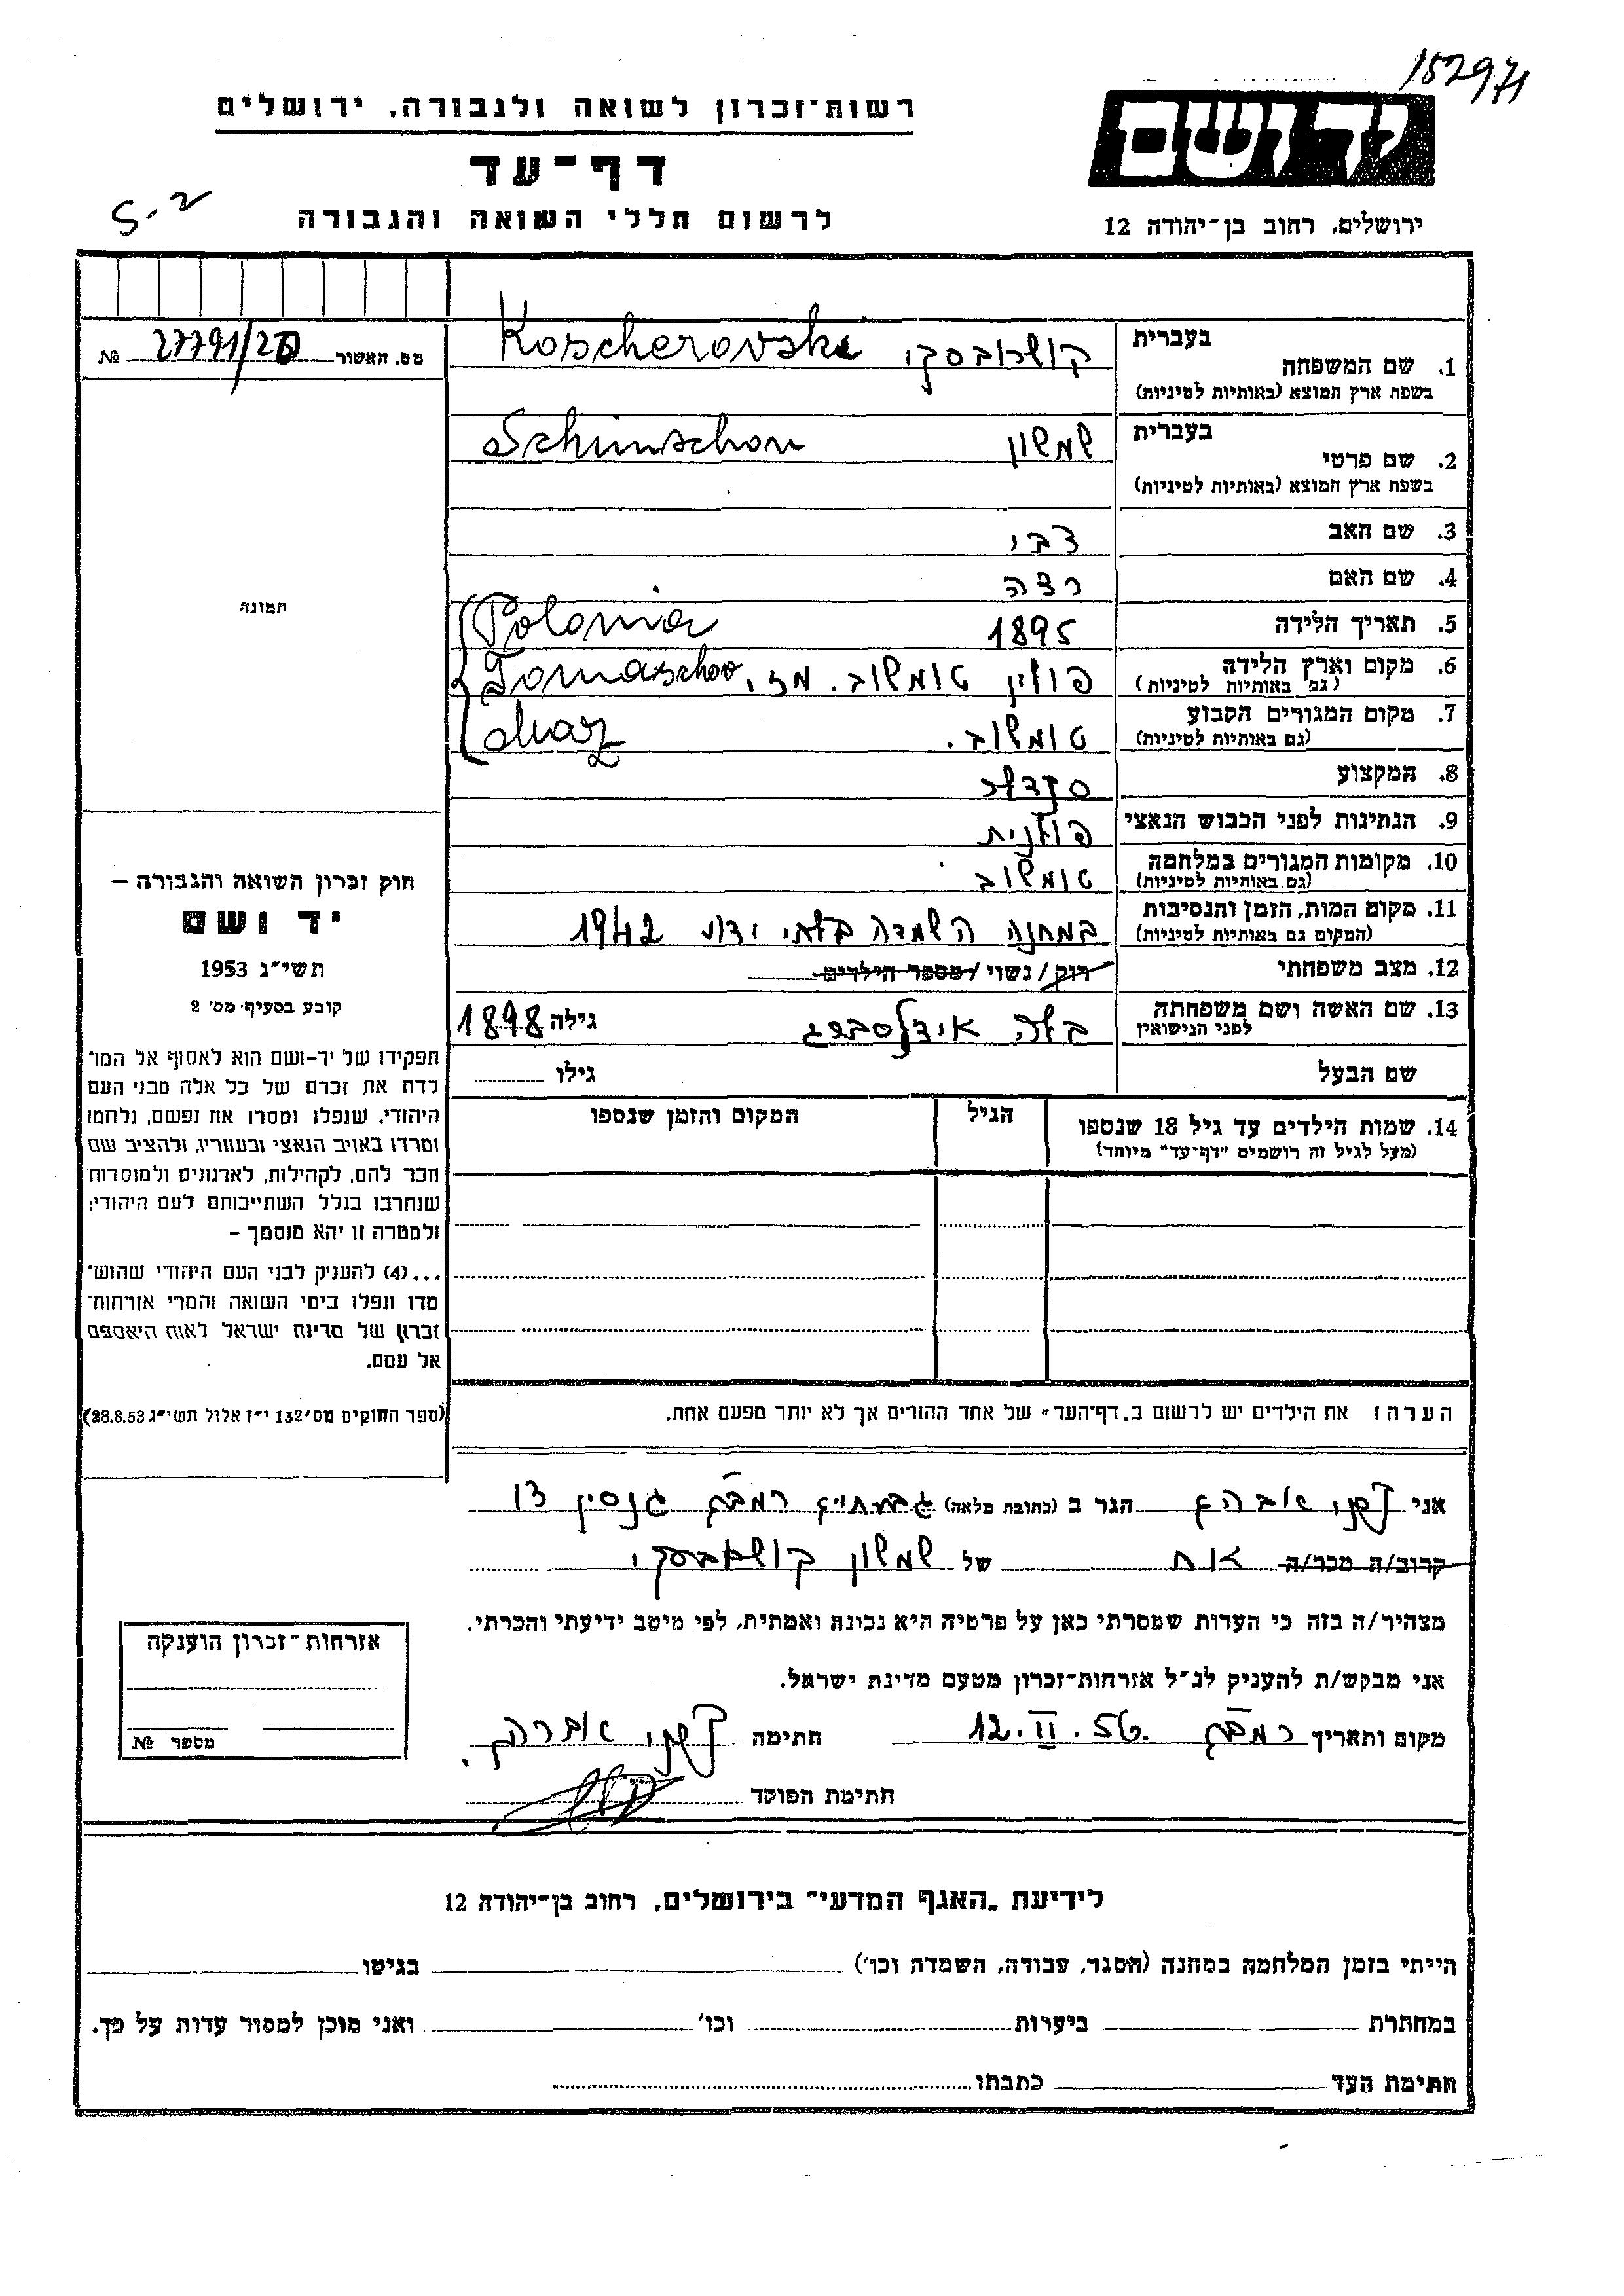 152971
רשות־זכרון לשואה ולגבורה, ירושלים
יד ושם
דף־עד
לרשום חללי השואה והגבורה
ירושלים, רחוב בן־יהודה 12
S-2
מס. האשור № 27791/20
בעברית
1. שם המשפחה
בשפת ארץ המוצא (באותיות לטיניות)
קושרובסקי Koscherovski
בעברית
2. שם פרטי
בשפת ארץ המוצא (באותיות לטיניות)
שמשון Schimschon
3. שם האב צבי
4. שם האם רצה
5. תאריך הלידה 1895 Polonia
6. מקום וארץ הלידה
(גם באותיות לטיניות)
פולין טומשוב. מז. Tomaschov
7. מקום המגורים הקבוע
(גם באותיות לטיניות)
טומשוב. maz
8. המקצוע סנדלר
9. הנתינות לפני הכבוש הנאצי פולנית
10. מקומות המגורים במלחמה
(גם באותיות לטיניות)
טומשוב
11. מקום המות, הזמן והנסיבות
(המקום גם באותיות לטיניות)
במחנה השמדה בלתי ידוע 1942
12. מצב משפחתי רוק/נשוי/מספר הילדים
13. שם האשה ושם משפחתה
לפני הנישואין
בלה אידלסברג גילה 1898
שם הבעל גילו
14. שמות הילדים עד גיל 18 שנספו
(מעל לגיל זה רושמים "דף־עד" מיוחד)
הגיל
המקום והזמן שנספו
תמונה
חוק זכרון השואה והגבורה –
יד ושם
תשי"ג 1953
קובע בסעיף מס' 2
תפקידו של יד-ושם הוא לאסוף אל המו־
לדת את זכרם של כל אלה מבני העם
היהודי, שנפלו ומסרו את נפשם, נלחמו
ומרדו באויב הנאצי ובעוזריו, ולהציב שם
וזכר להם, לקהילות, לארגונים ולמוסדות
שנחרבו בגלל השתייכותם לעם היהודי;
ולמטרה זו יהא מוסמך –
...(4) להעניק לבני העם היהודי שהוש־
מדו ונפלו בימי השואה והמרי אזרחות־
זכרון של מדינת ישראל לאות היאספם
אל עמם.
(ספר החוקים מס' 132 י"ז אלול תשי"ג 28.8.53)
הערה: את הילדים יש לרשום ב"דף־העד" של אחד ההורים אך לא יותר מפעם אחת.
אני אברהם הגר ב (כתובת מלאה) רמב"ם 13
קרוב/ה מכר/ה אח של שמשון קושרובסקי
מצהיר/ה בזה כי העדות שמסרתי כאן על פרטיה היא נכונה ואמתית, לפי מיטב ידיעתי והכרתי.
אני מבקש/ת להעניק לנ"ל אזרחות־זכרון מטעם מדינת ישראל.
מקום ותאריך 12.II.56 חתימה אברהם
חתימת הפוקד
אזרחות־זכרון הוענקה
מספר №
לידיעת "האגף המדעי" בירושלים, רחוב בן־יהודה 12
הייתי בזמן המלחמה במחנה (הסגר, עבודה, השמדה וכו') בגיטו
במחתרת ביערות וכו' ואני מוכן למסור עדות על כך.
חתימת העד כתבתו